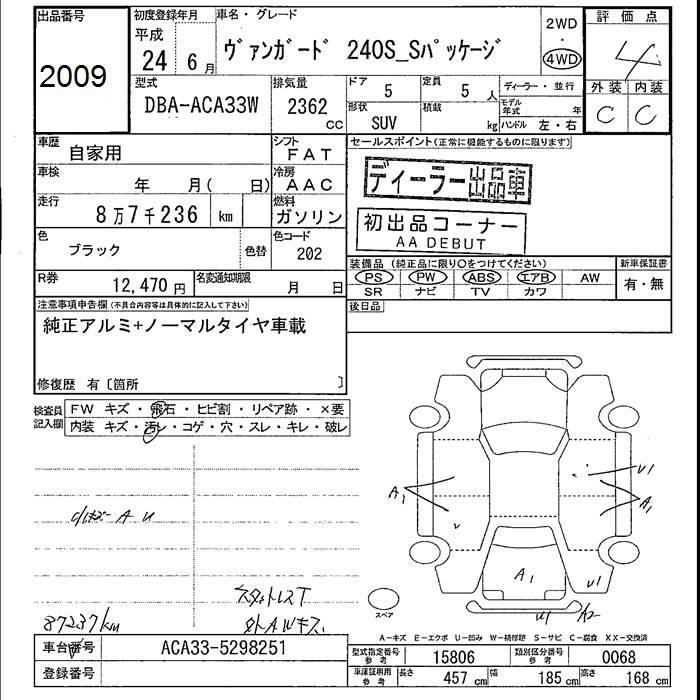 出品番号 初度登録年月 車名・グレード 2WD 評価点
2009 平成 24年 6月 ヴァンガード 240S_Sパッケージ ・ 4WD 4
型式 排気量 ドア 定員 ディーラー・並行 外装 内装
DBA-ACA33W 2362 cc 5 5人 モデル年式 年 C C
形状 SUV 積載 kg ハンドル 左・右
車歴 自家用 シフト FAT セールスポイント(正常に機能するものに限ります)
車検 年 月( 日) 冷房 AAC ディーラー出品車
走行 8万7千236 km 燃料 ガソリン 初出品コーナー
AA DEBUT
色 ブラック 色替 色コード 202
装備品(純正品に限り○をつけてください) 新車保証書
PS PW ABS エアB AW 有・無
SR ナビ TV カワ
R券 12,470円 名変通知期限 月 日
後日品
注意事項申告欄(不具合内容等は具体的に記入して下さい)
純正アルミ+ノーマルタイヤ車載
修復歴 有〔箇所 〕
検査員記入欄 FW キズ・飛石・ヒビ割・リペア跡・×要
内装 キズ・汚レ・コゲ・穴・スレ・キレ・破レ
A1 U1 A1
A U
A1 U1
スタットレスT
外AWキズ
スペア U1 A2
87237km
A-キズ E-エクボ U-凹み W-補修跡 S-サビ C-腐食 XX-交換済
車台番号 ACA33-5298251
型式指定番号 参考 15806 類別区分番号 参考 0068
登録番号
車庫証明用 参考 長さ 457 cm 幅 185 cm 高さ 168 cm